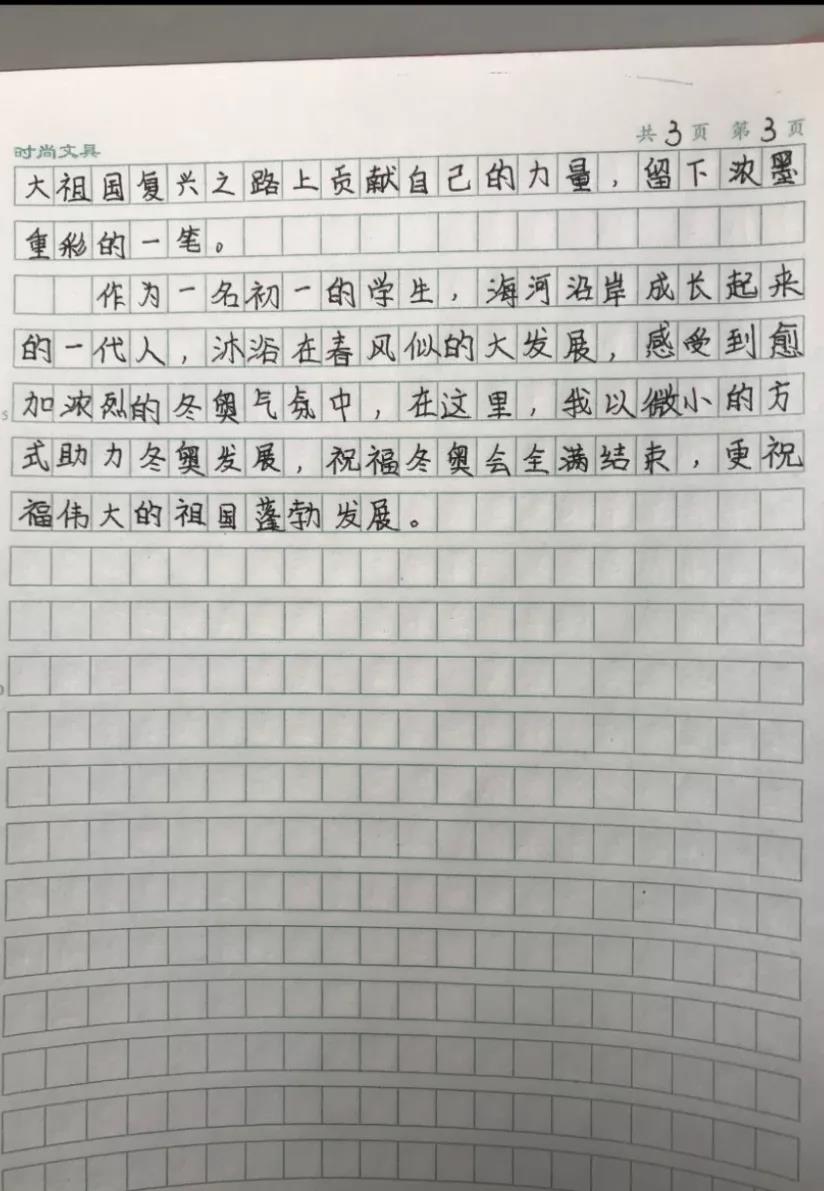 时尚文具
共 3 页 第 3 页
大祖国复兴之路上贡献自己的力量，留下浓墨
重彩的一笔。
作为一名初一的学生，海河沿岸成长起来
的一代人，沐浴在春风似的大发展，感受到愈
加浓烈的冬奥气氛中，在这里，我以微小的方
式助力冬奥发展，祝福冬奥会全满结束，更祝
福伟大的祖国蓬勃发展。
5